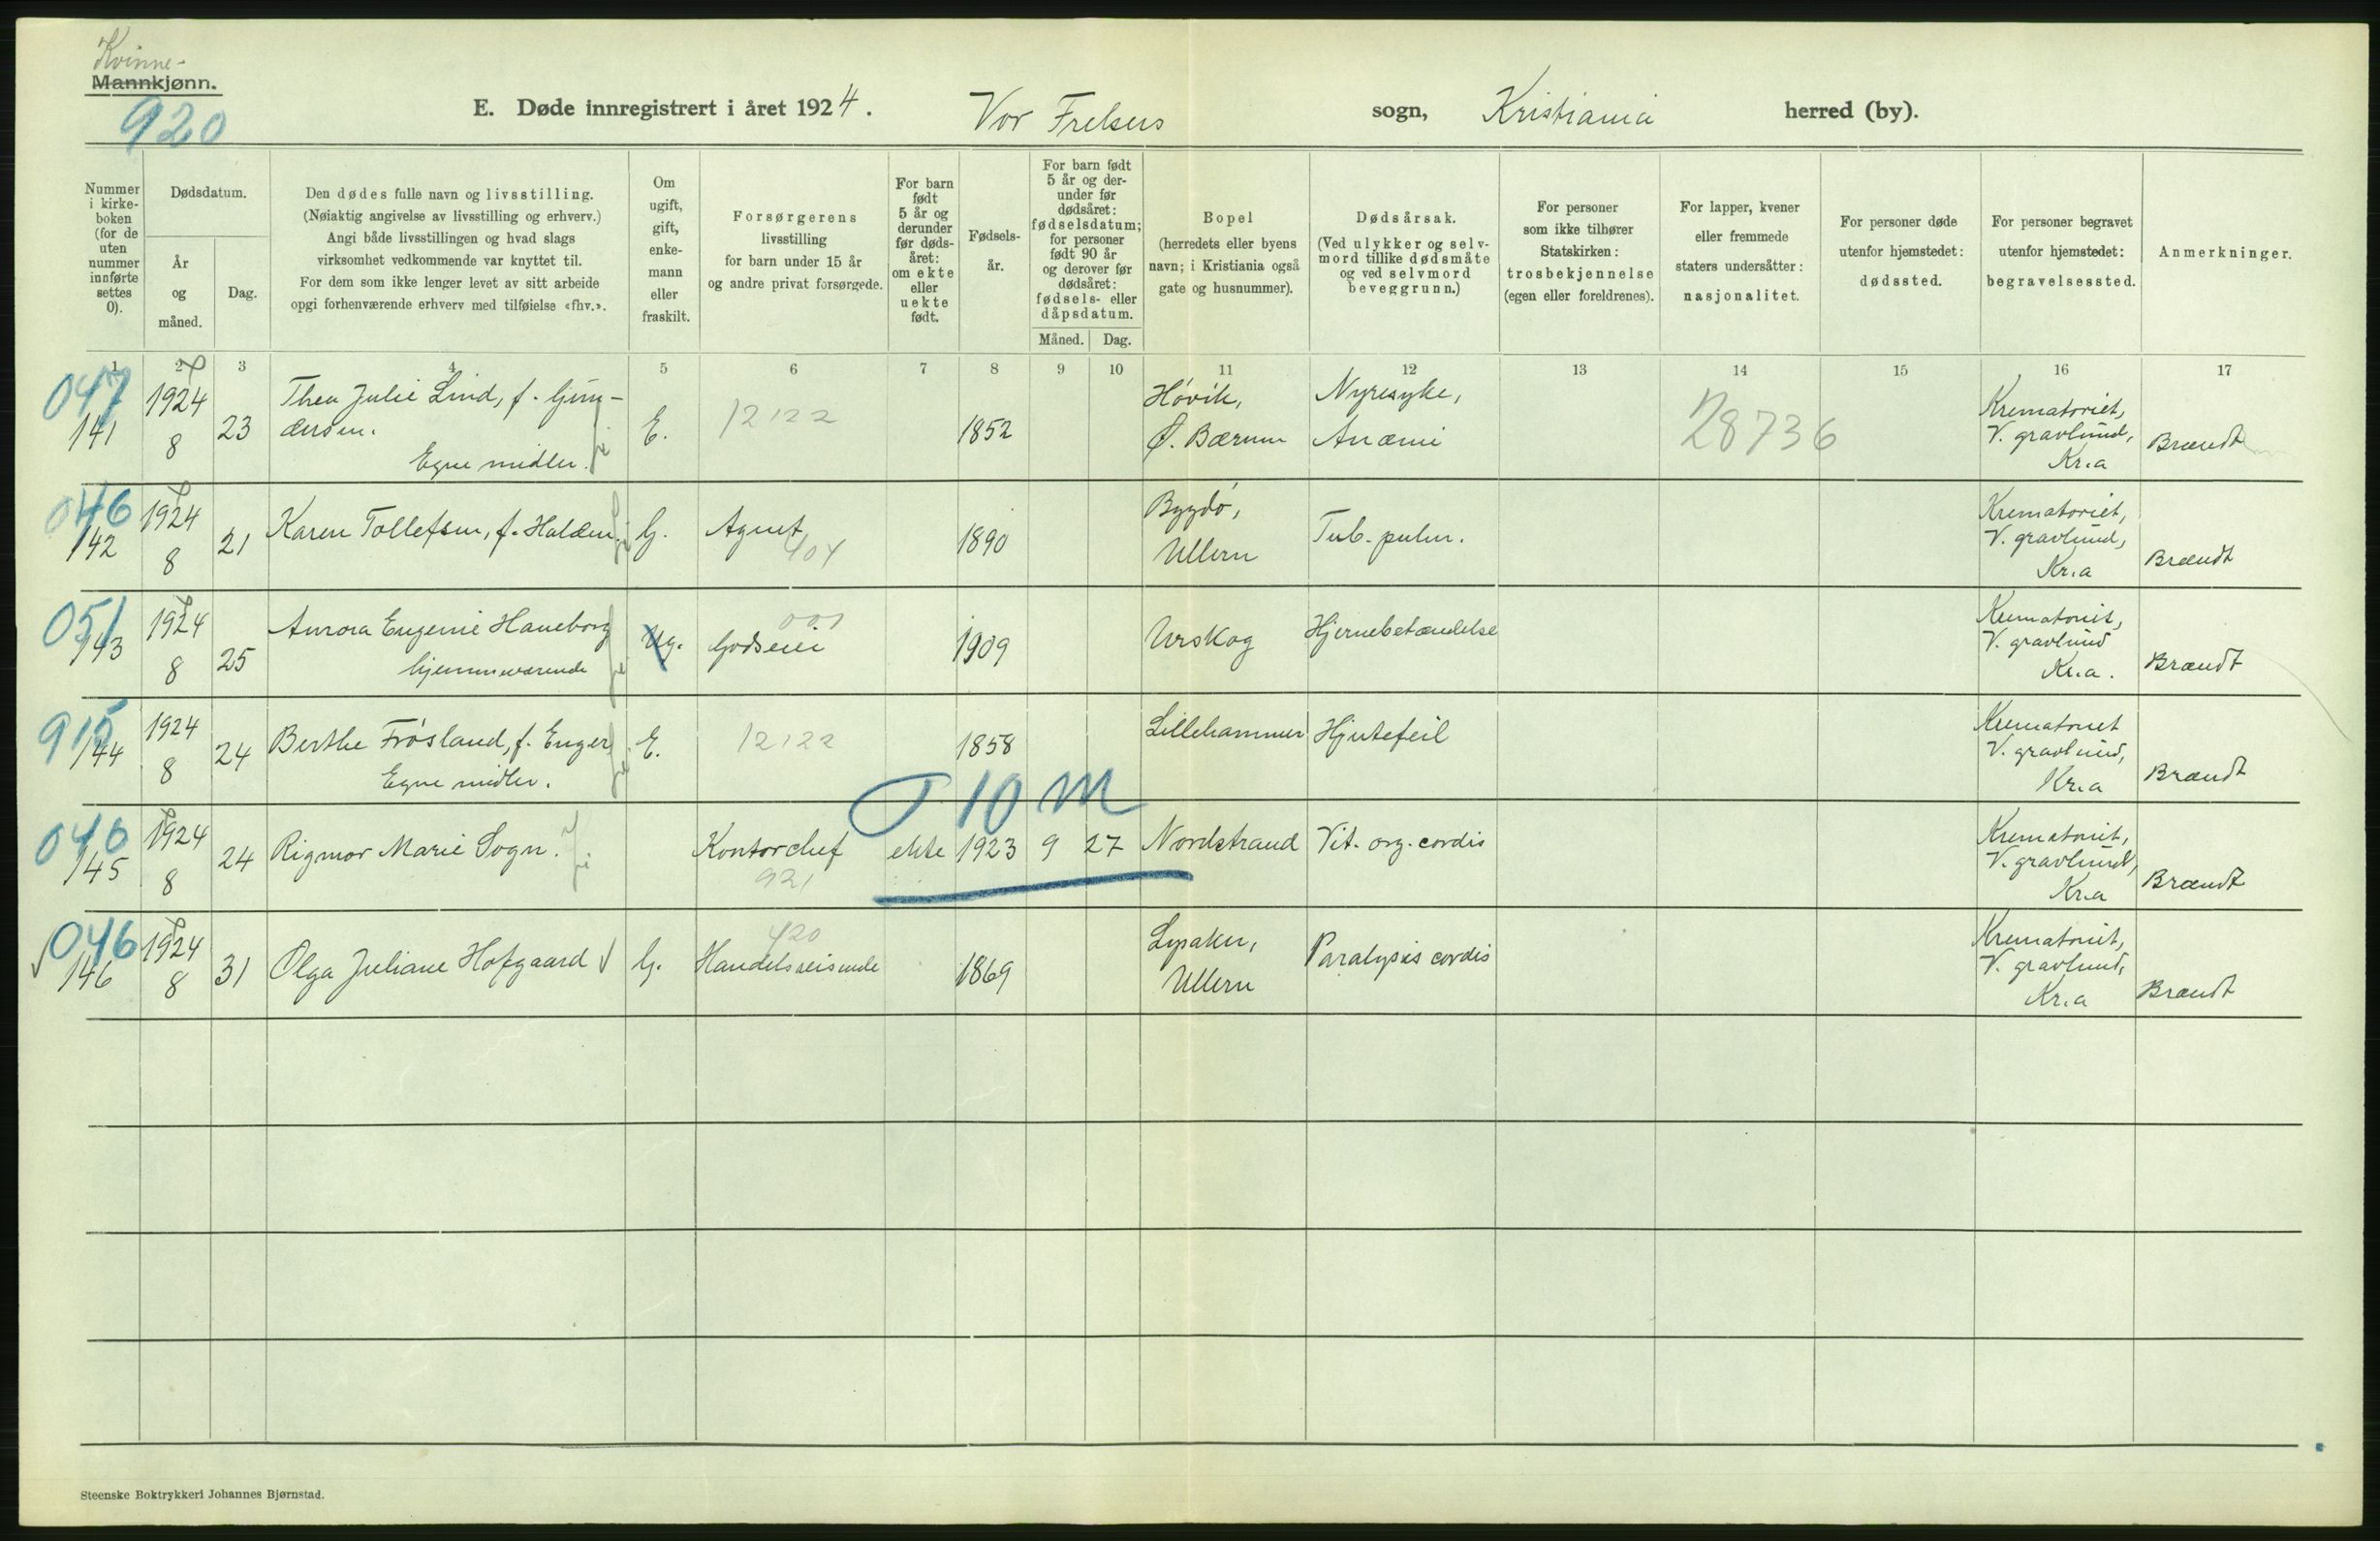 Kvinne-
Mannkjønn.
920
E. Døde innregistrert i året 1924.
Vor Frelsers sogn, Kristiania herred (by).
Nummer i kirkeboken (for de uten nummer innførte settes 0).
Dødsdatum.
År og måned.
Dag.
Den dødes fulle navn og livsstilling.
(Nøiaktig angivelse av livsstilling og erhverv.)
Angi både livsstillingen og hvad slags
virksomhet vedkommende var knyttet til.
For dem som ikke lenger levet av sitt arbeide
opgi forhenværende erhverv med tilføielse «fhv.».
Om ugift, gift, enkemann eller fraskilt.
Forsørgerens livsstilling for barn under 15 år og andre privat forsørgede.
For barn født 5 år og derunder før dødsåret: om ekte eller uekte født.
Fødselsår.
For barn født 5 år og derunder før dødsåret: fødselsdatum; for personer født 90 år og derover før dødsåret: fødsels- eller dåpsdatum.
Måned. Dag.
Bopel (herredets eller byens navn; i Kristiania også gate og husnummer).
Dødsårsak. (Ved ulykker og selvmord tillike dødsmåte og ved selvmord beveggrunn.)
For personer som ikke tilhører Statskirken: trosbekjennelse (egen eller foreldrenes).
For lapper, kvener eller fremmede staters undersåtter: nasjonalitet.
For personer døde utenfor hjemstedet: dødssted.
For personer begravet utenfor hjemstedet: begravelsessted.
Anmerkninger.
1 2 3 4 5 6 7 8 9 10 11 12 13 14 15 16 17
047 141 1924 8 23 Thea Julie Lind, f. Gundersen. Egne midler. E. 12122 1852 Høvik, Ø. Bærum Nyresyke, Anæmi 28736 Krematoriet, V. gravlund, Kr.a Brændt
046 142 1924 8 21 Karen Tollefsen, f. Halden. G. Agent 904 1890 Bygdø, Ullern Tub. pulm. Krematoriet, V. gravlund, Kr.a Brændt
051 143 1924 8 25 Aurora Eugenie Haneborg hjemmeværende Ug. Godseier 001 1909 Urskog Hjernebetændelse Krematoriet, V. gravlund Kr.a. Brændt
915 144 1924 8 24 Berthe Frøsland, f. Enger Egne midler. E. 12122 1858 Lillehammer Hjertefeil Krematoriet V. gravlund, Kr.a Brændt
T 10 M
040 145 1924 8 24 Rigmor Marie Sogn. Kontorchef 921 ekte 1923 9 27 Nordstrand Vit. org. cordis Krematoriet, V. gravlund, Kr.a Brændt
046 146 1924 8 31 Olga Juliane Hofgaard G. 920 Handelsreisende 1869 Lysaker, Ullern Paralysis cordis Krematoriet, V. gravlund, Kr.a Brændt
Steenske Boktrykkeri Johannes Bjørnstad.